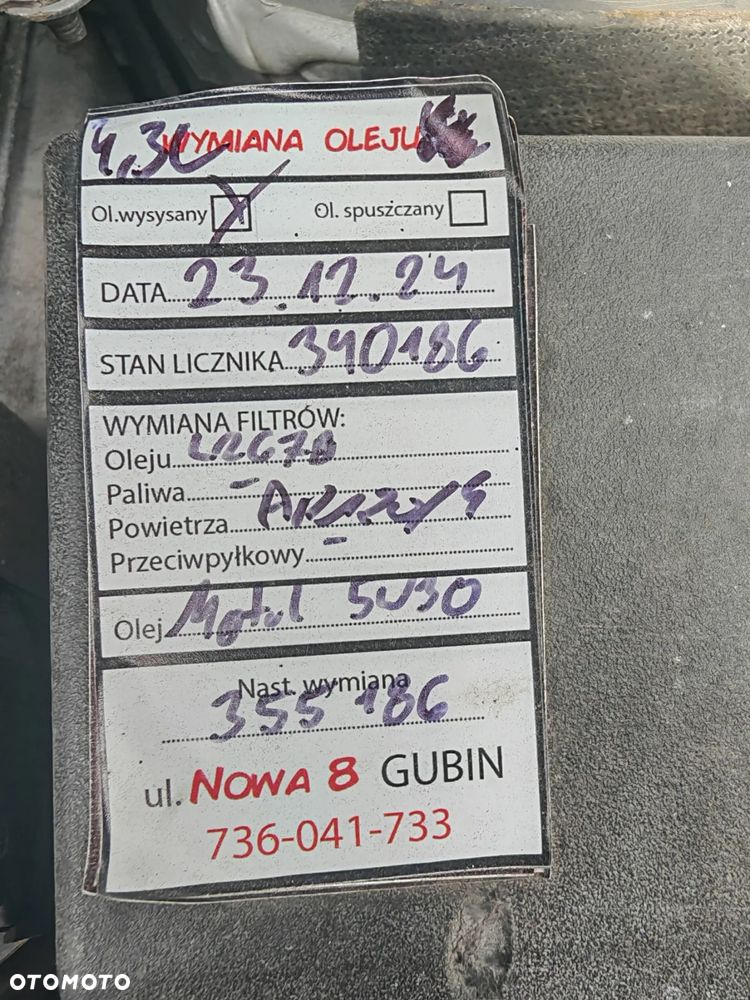 4,3L WYMIANA OLEJU
Ol.wysysany Ol. spuszczany
DATA 23.12.24
STAN LICZNIKA 340186
WYMIANA FILTRÓW:
Oleju
Paliwa -
Powietrza
Przeciwpyłkowy -
Olej Motul 5W30
Nast. wymiana
355186
ul. NOWA 8 GUBIN
736-041-733
OTOMOTO